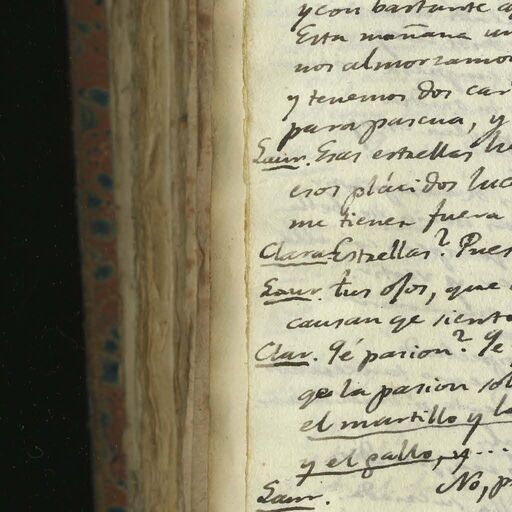 y con bastante
Esta mañana un
nos almorzamos
y tenemos dos car
para pascua, y
Laur. Esas estrellas
esos plácidos luc
me tienen fuera
Clara. Estrellas? Pues
Laur. tus ojos, que
causan qe siento
Clar. Qé pasion? Qe
qe la pasion sol
el martillo y la
y el gallo, y...
Laur. No, p